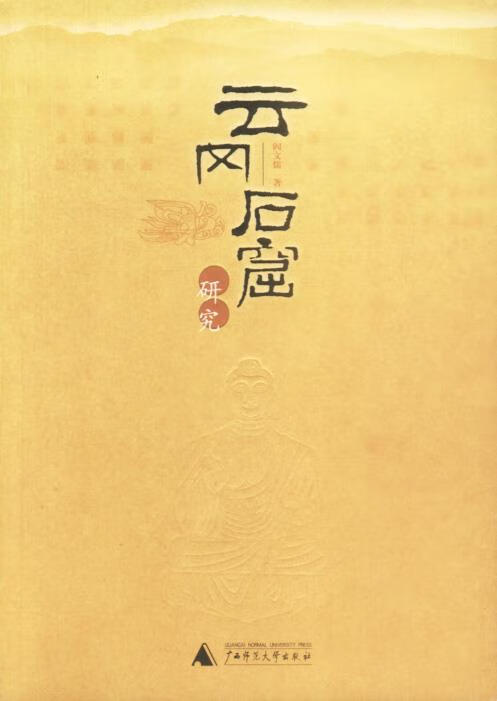 云冈石窟
研究
阎文儒 著
GUANGXI NORMAL UNIVERSITY PRESS
广西师范大学出版社